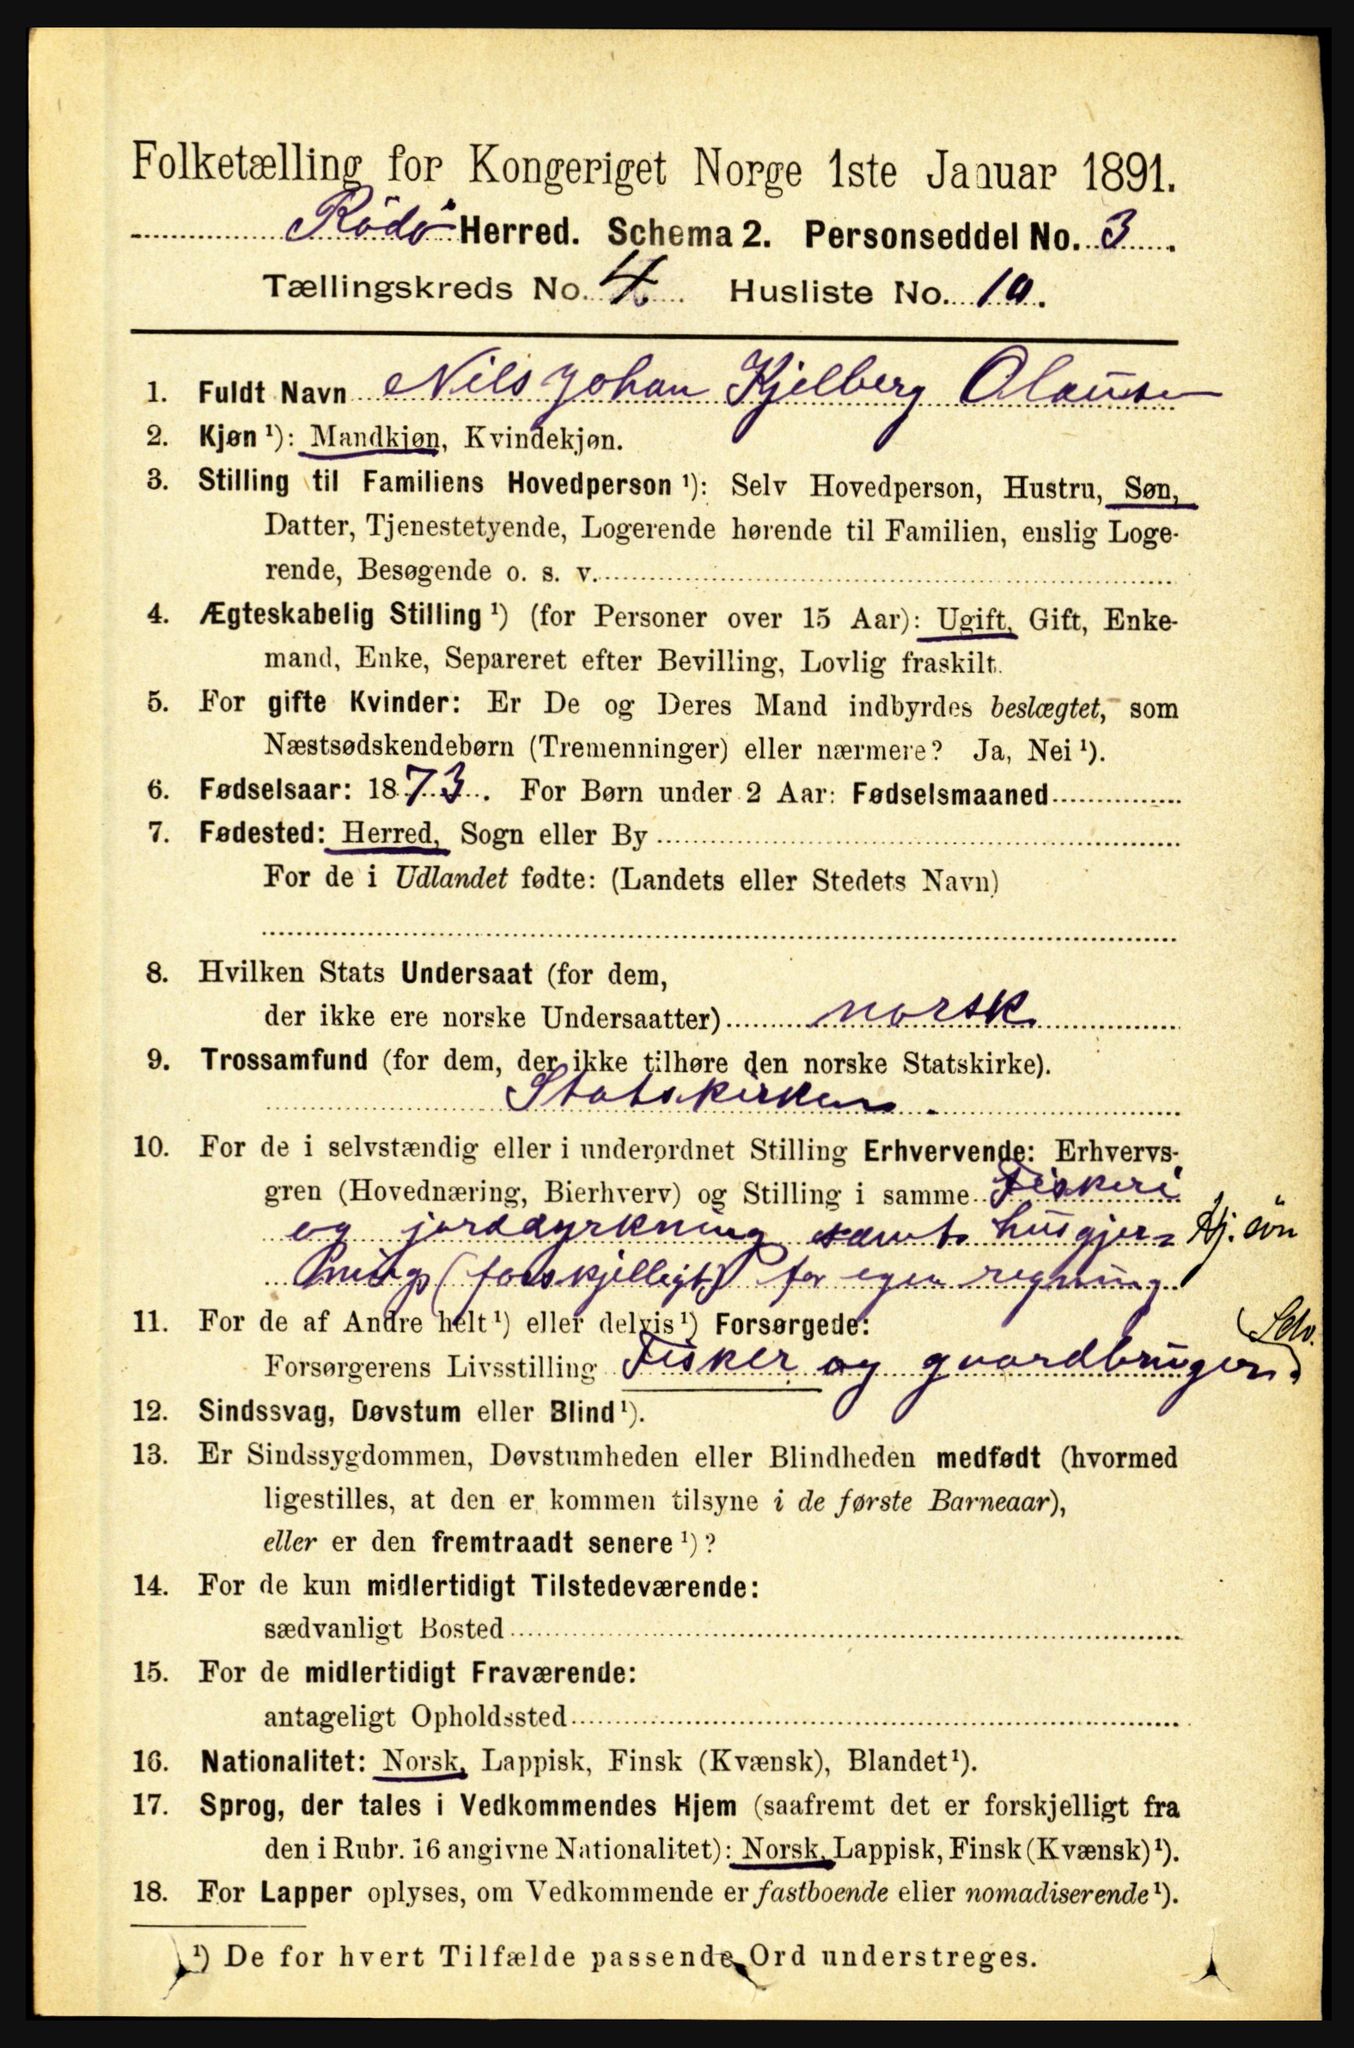 Folketælling for Kongeriget Norge 1ste Januar 1891.
Rödö Herred. Schema 2. Personseddel No. 3.
Tællingskreds No. 4. Husliste No. 10.
1. Fuldt Navn Nils Johan Kjelberg Olausen
2. Kjøn ¹): Mandkjøn, Kvindekjøn.
3. Stilling til Familiens Hovedperson ¹): Selv Hovedperson, Hustru, Søn,
Datter, Tjenestetyende, Logerende hørende til Familien, enslig Loge-
rende, Besøgende o. s. v.
4. Ægteskabelig Stilling ¹) (for Personer over 15 Aar): Ugift, Gift, Enke-
mand, Enke, Separeret efter Bevilling, Lovlig fraskilt.
5. For gifte Kvinder: Er De og Deres Mand indbyrdes beslægtet, som
Næstsødskendebørn (Tremenninger) eller nærmere? Ja, Nei ¹).
6. Fødselsaar: 1873. For Børn under 2 Aar: Fødselsmaaned
7. Fødested: Herred, Sogn eller By
For de i Udlandet fødte: (Landets eller Stedets Navn)
8. Hvilken Stats Undersaat (for dem,
der ikke ere norske Undersaatter) norsk
9. Trossamfund (for dem, der ikke tilhøre den norske Statskirke).
Statskirken.
10. For de i selvstændig eller i underordnet Stilling Erhvervende: Erhvervs-
gren (Hovednæring, Bierhverv) og Stilling i samme Fiskeri
og jorddyrkning samt husgjer= Hj. sön
nings (forskjelligt) for egen regning
11. For de af Andre helt ¹) eller delvis ¹) Forsørgede:
(Selv.
Forsørgerens Livsstilling Fisker og gaardbruger.
12. Sindssvag, Døvstum eller Blind ¹).
13. Er Sindssygdommen, Døvstumheden eller Blindheden medfødt (hvormed
ligestilles, at den er kommen tilsyne i de første Barneaar),
eller er den fremtraadt senere ¹)?
14. For de kun midlertidigt Tilstedeværende:
sædvanligt Bosted
15. For de midlertidigt Fraværende:
antageligt Opholdssted
16. Nationalitet: Norsk, Lappisk, Finsk (Kvænsk), Blandet ¹).
17. Sprog, der tales i Vedkommendes Hjem (saafremt det er forskjelligt fra
den i Rubr. 16 angivne Nationalitet): Norsk, Lappisk, Finsk (Kvænsk) ¹).
18. For Lapper oplyses, om Vedkommende er fastboende eller nomadiserende ¹).
¹) De for hvert Tilfælde passende Ord understreges.